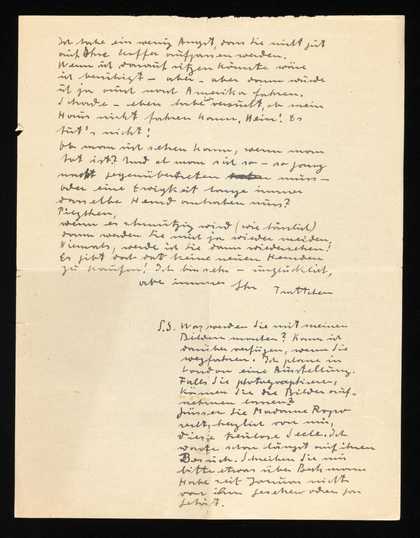 Ich habe ein wenig Angst, dass Sie nicht gut
auf Ihre Koffer aufpassen werden.
Wenn ich darauf sitzen könnte wäre
ich beruhigt – aber – aber dann würde
ich ja auch nach Amerika fahren.
Schade – eben habe versucht, ob mein
Haus nicht fahren kann. Nein! Es
tut's nicht!
Ob man sich sehen kann, wenn man
tot ist? Und ob man sich so – so ganz
nackt gegenübertreten muss –
oder eine Ewigkeit lange immer
dasselbe Hemd anhaben muss?
wenn es schmutzig wird (wie
dann werden Sie mich ja wieder meiden.
Niemals, werde ich Sie dann wiedersehen!
Es gibt doch dort keine neuen Hemden
zu kaufen! Ich bin sehr – unglücklich,
aber immer Ihr
P.S. Was werden Sie mit meinen
Bildern machen? Kann ich
darüber verfügen, wenn Sie
wegfahren. Ich plane in
London eine Ausstellung.
Falls Sie photographieren,
können Sie die Bilder auf-
nehmen lassen?
Grüssen Sie Madame
herzlich von mir,
diese treulose Seele. Ich
warte schon längst auf ihren
Besuch. Schreiben Sie mir
bitte etwas über Beckmann
Habe seit Januar nichts
von ihm gesehen oder ge-
hört.